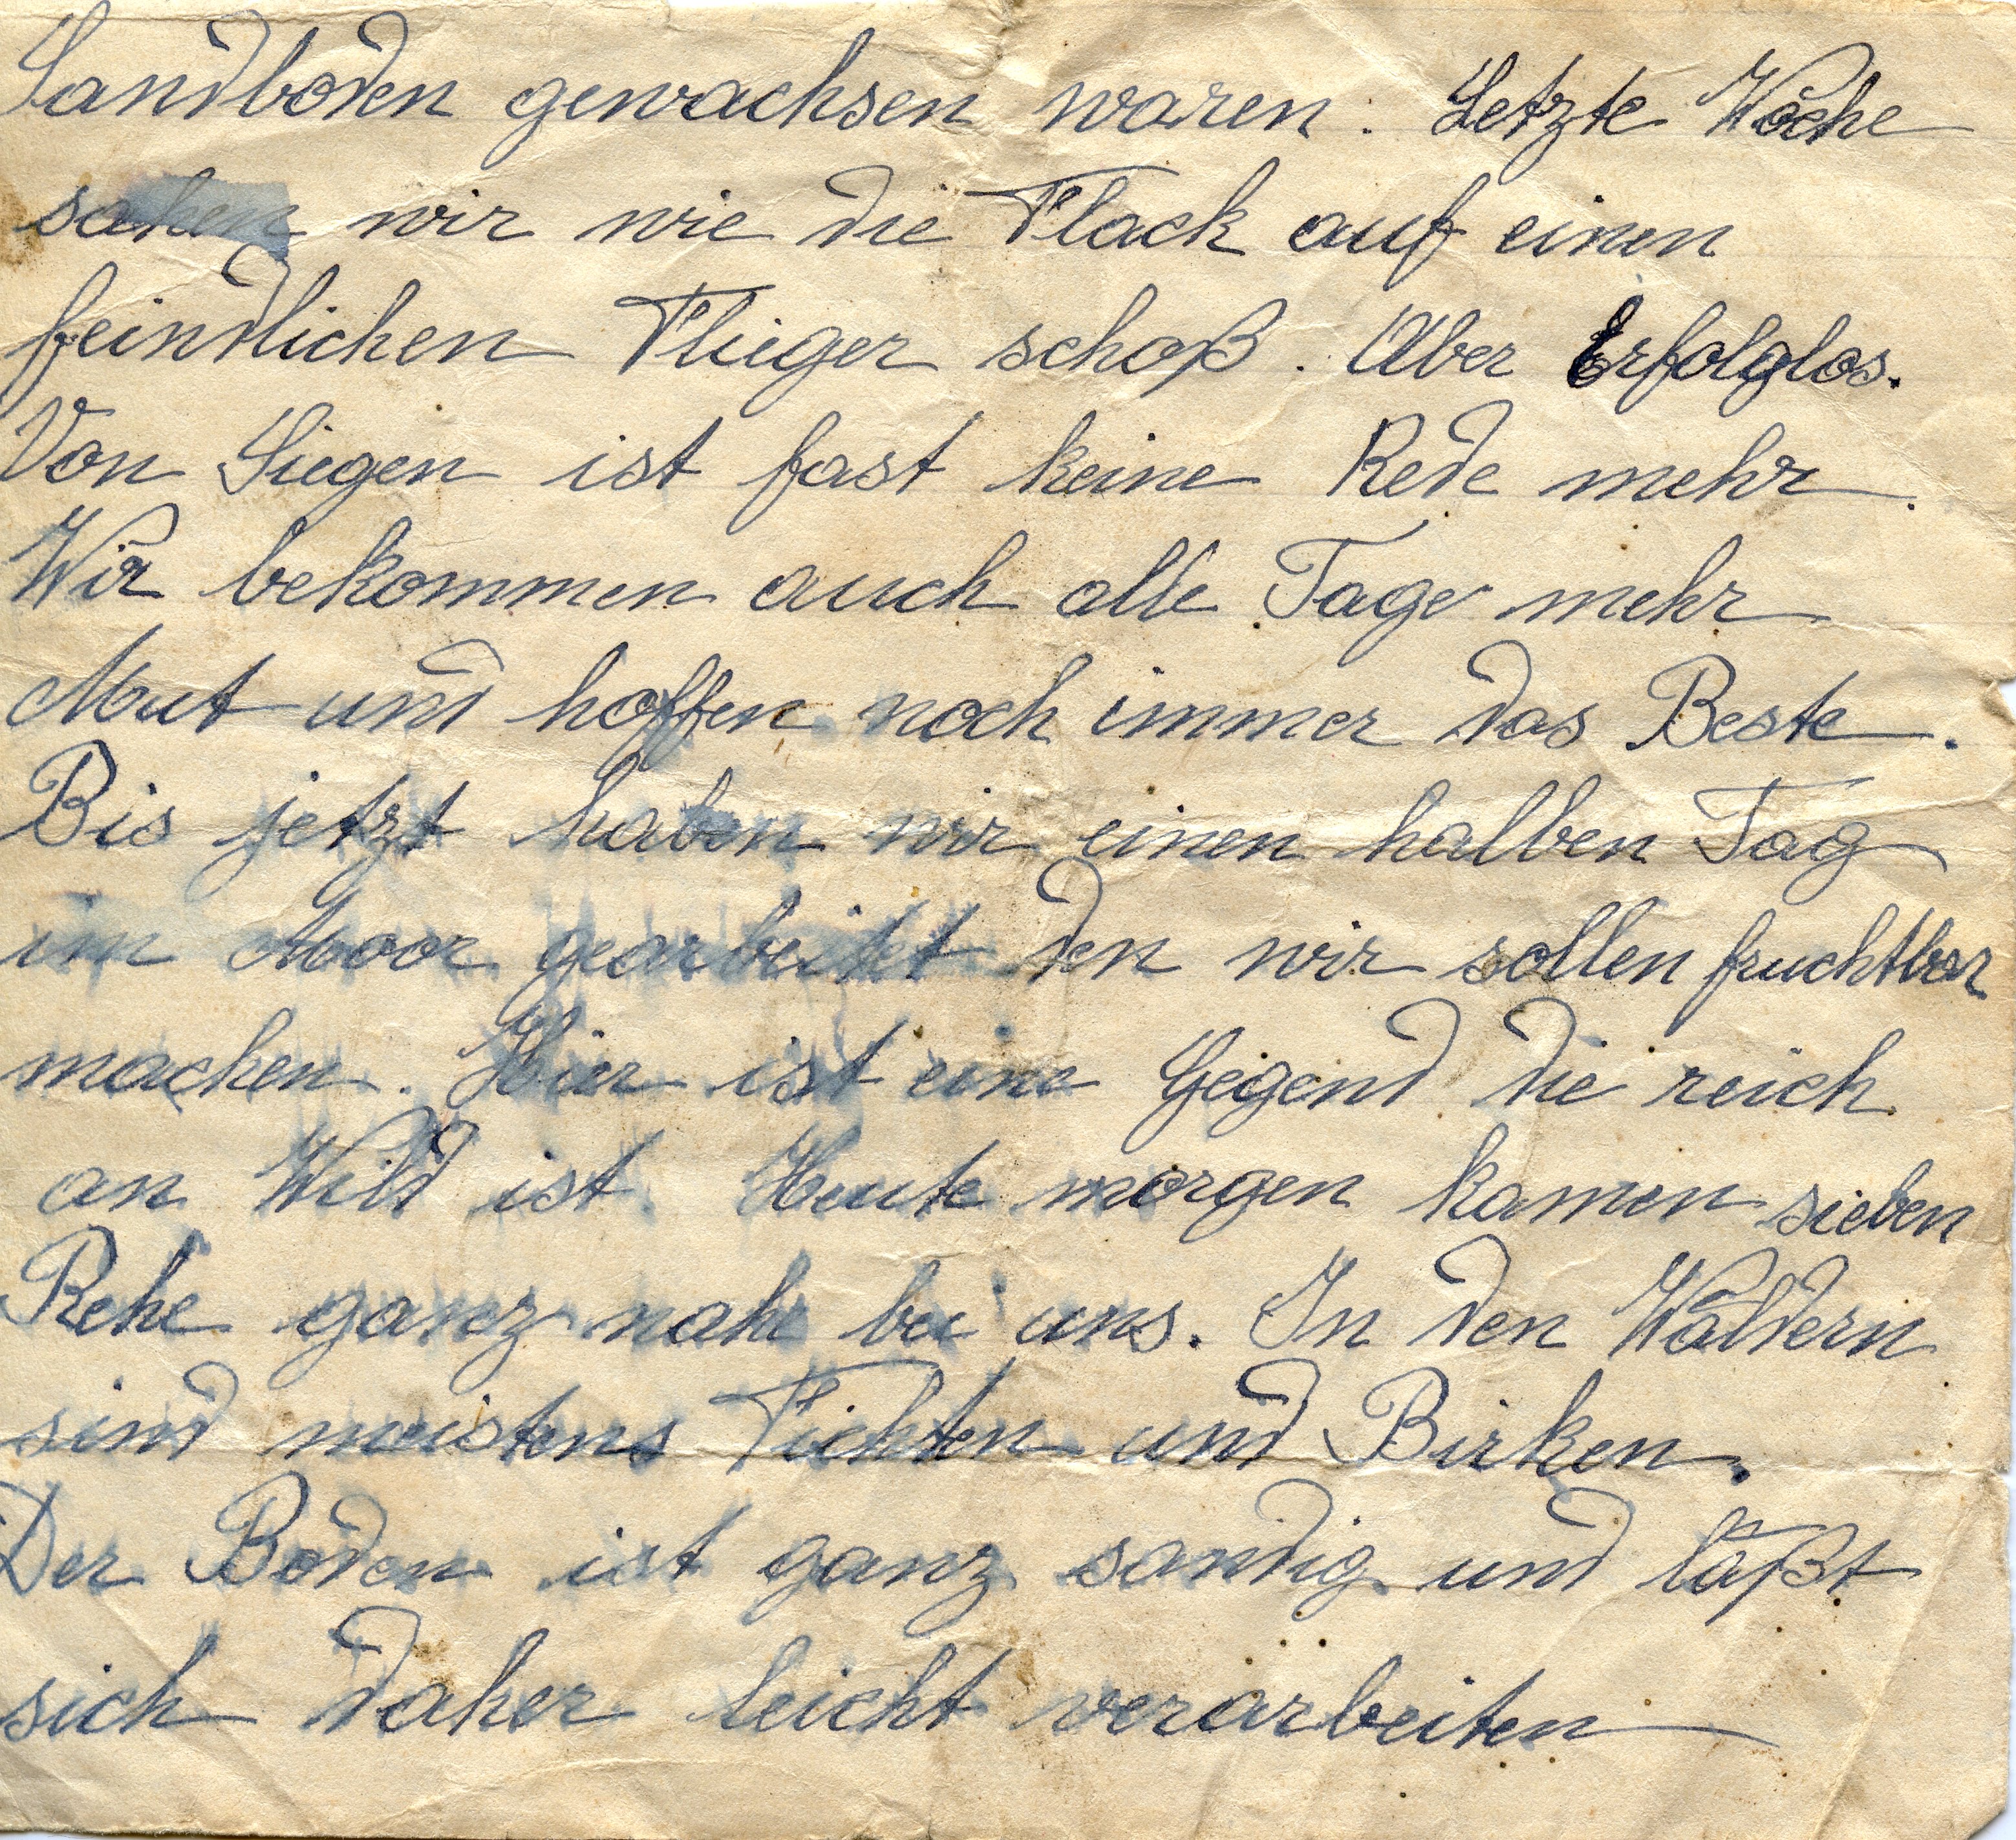 Sandboden gewachsen waren. Letzte Woche
sahen wir wie die Flack auf einen
feindlichen Flieger schoß. Aber Erfolglos.
Von Siegen ist fast keine Rede mehr.
Wir bekommen auch alle Tage mehr
Mut und hoffen noch immer das Beste.
Bis jetzt haben wir einen halben Tag
im Moor gearbeitet den wir sollen fruchtbar
machen. Hier ist eine Gegend die reich
an Wild ist. Heute morgen kamen sieben
Rehe ganz nahe bei uns. In den Wäldern
sind meistens Fichten und Birken.
Der Boden ist ganz sandig und läßt
sich daher leicht verarbeiten